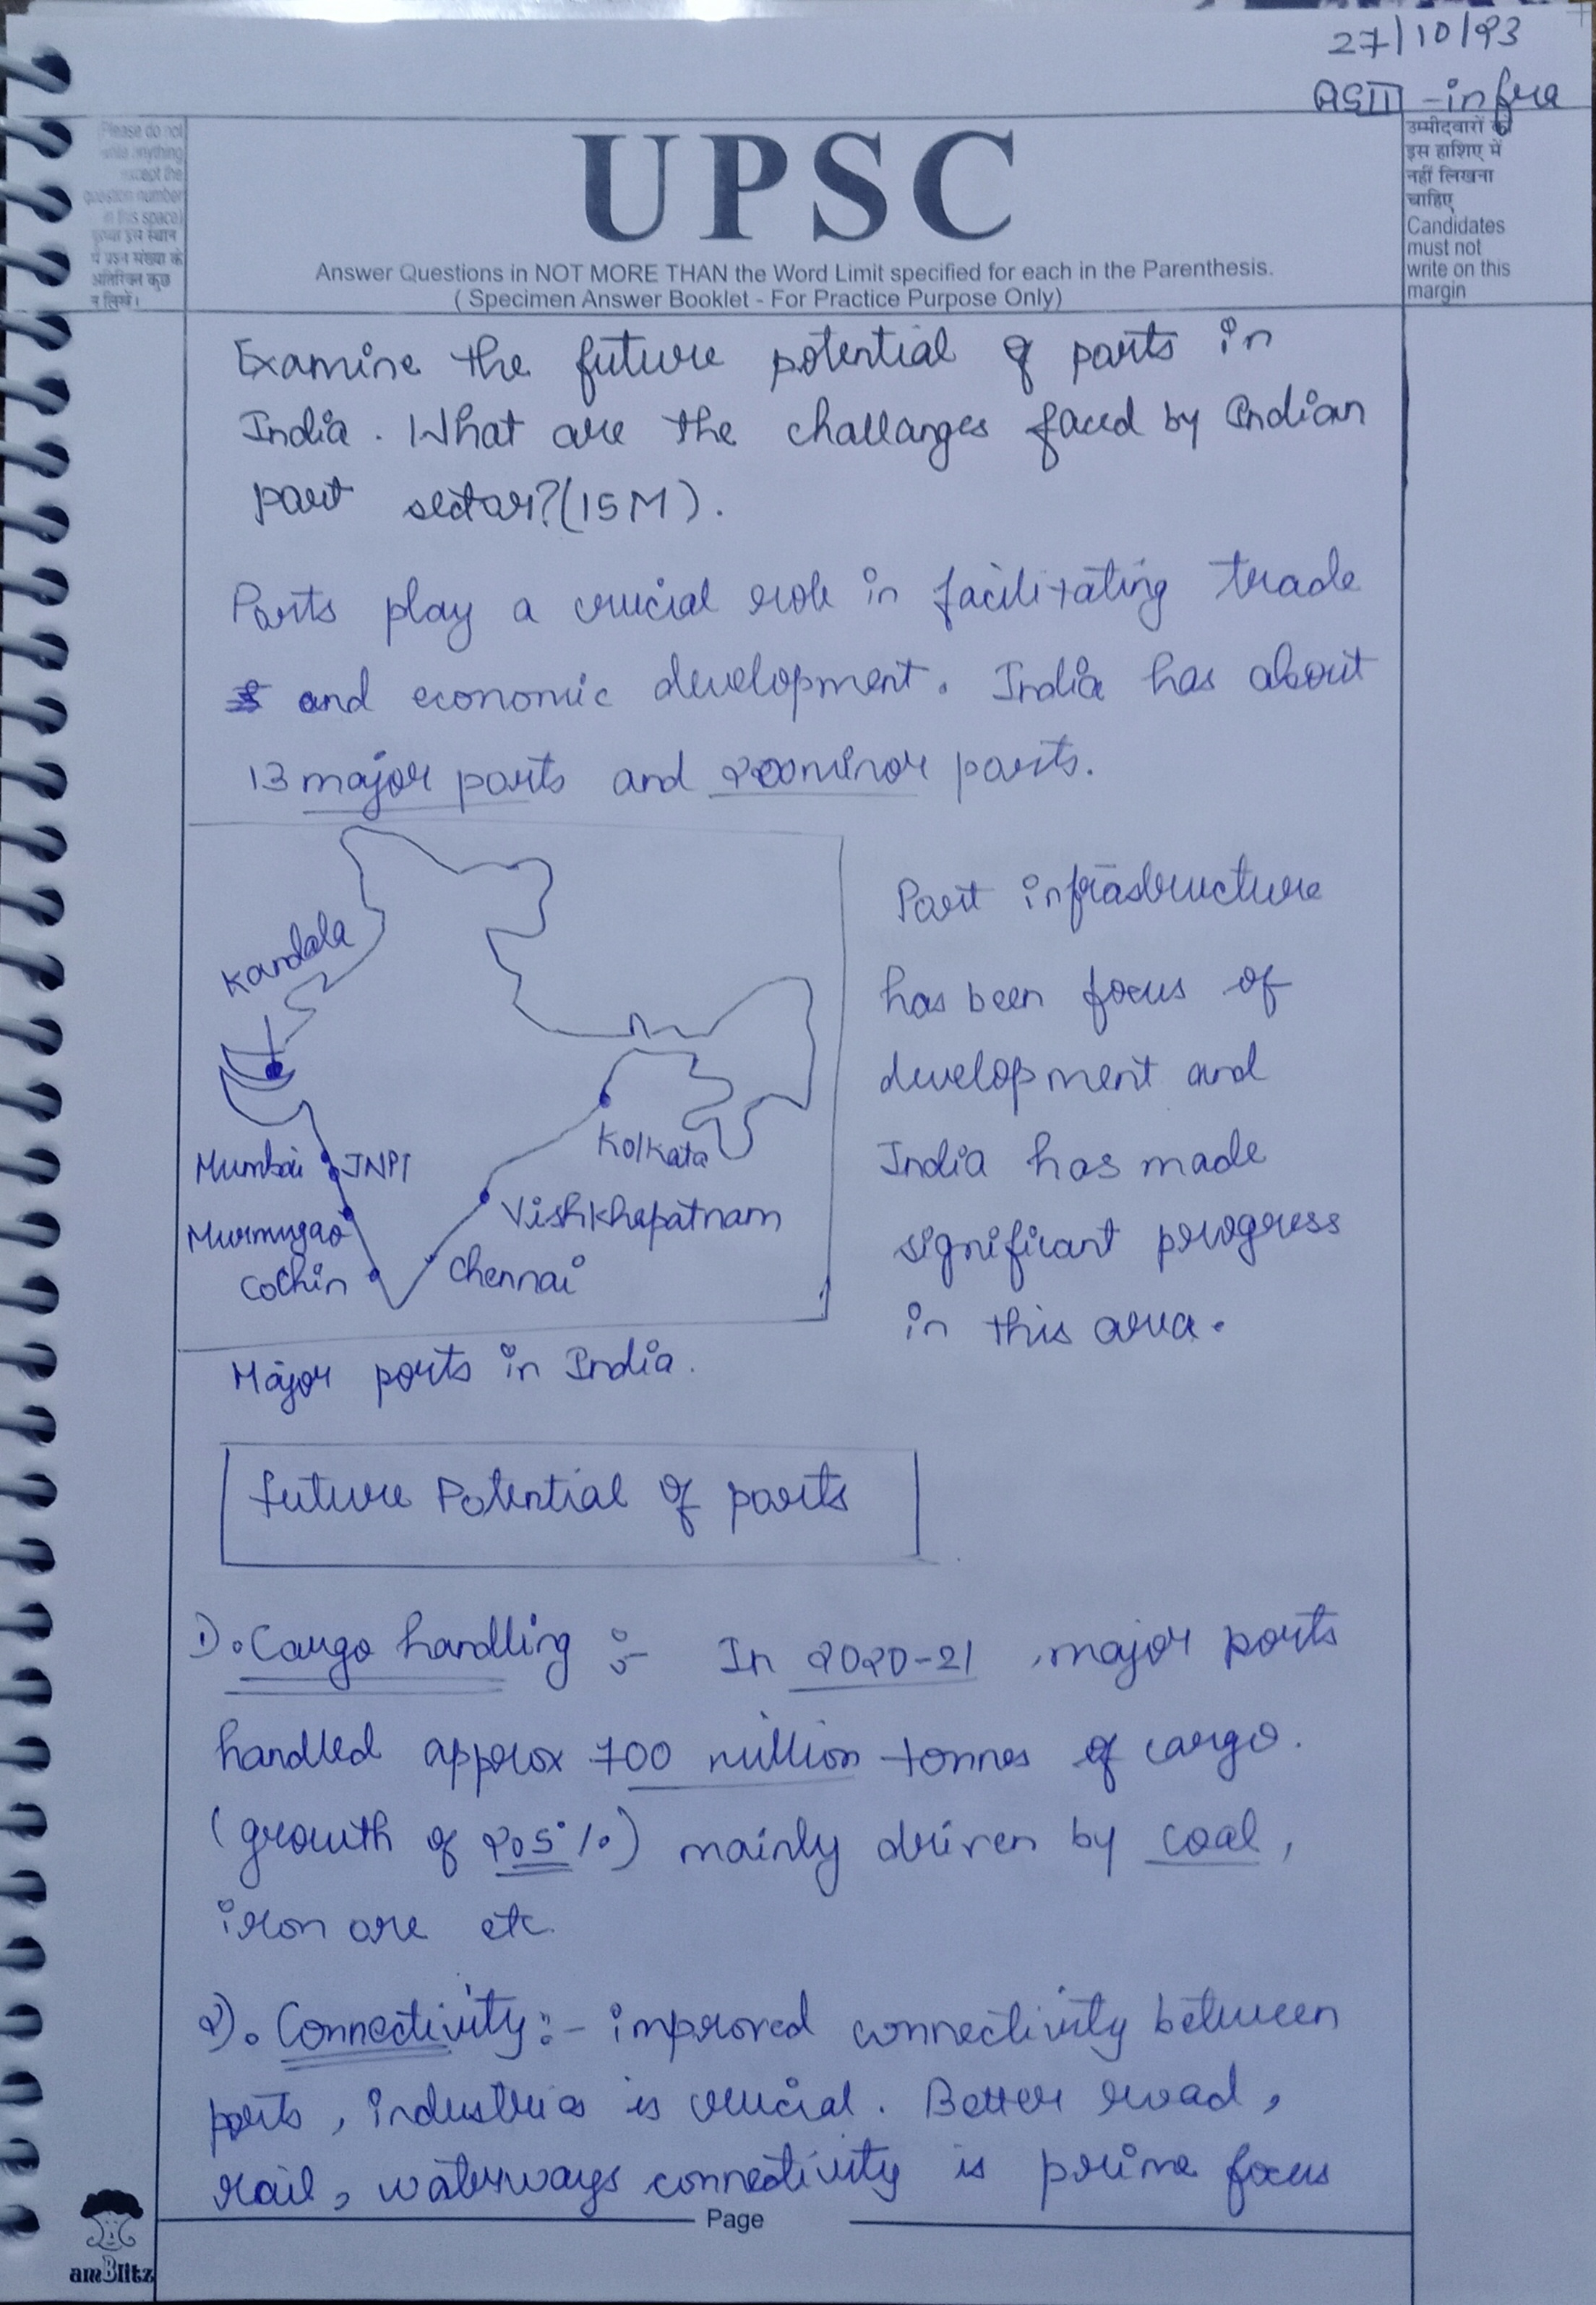 27/10/23
GSIII -infra
Please do not
write anything
except the
question number
in this space)
कृपया इस स्थान
में प्रश्न संख्या के
अतिरिक्त कुछ
न लिखें।
UPSC
Answer Questions in NOT MORE THAN the Word Limit specified for each in the Parenthesis.
( Specimen Answer Booklet - For Practice Purpose Only)
उम्मीदवारों को
इस हाशिए में
नहीं लिखना
चाहिए
Candidates
must not
write on this
margin
Examine the future potential of ports in
India. What are the challanges faced by Indian
port sector?(15M).
Ports play a crucial role in facilitating trade
and economic development. India has about
13 major ports and 200 minor ports.
Kandala
Mumbai JNPT
Murmugao
Cochin
Chennai
Vishkhapatnam
Kolkata
Major ports in India.
Port infrastructure
has been focus of
development and
India has made
significant progress
in this area.
Future Potential of ports
1). Cargo handling :- In 2020-21, major ports
handled approx 700 million tonnes of cargo.
(growth of 2.5%) mainly driven by coal,
iron ore etc
2). Connectivity:- improved connectivity between
ports, industries is crucial. Better road,
rail, waterways connectivity is prime focus
Page
amBlitz